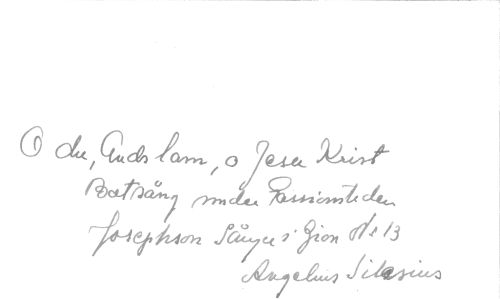 O du, Guds lam, o Jesu Krist
Botsång under Passionstiden
Josephson Sånger i Zion No 13
Angelius Silesius